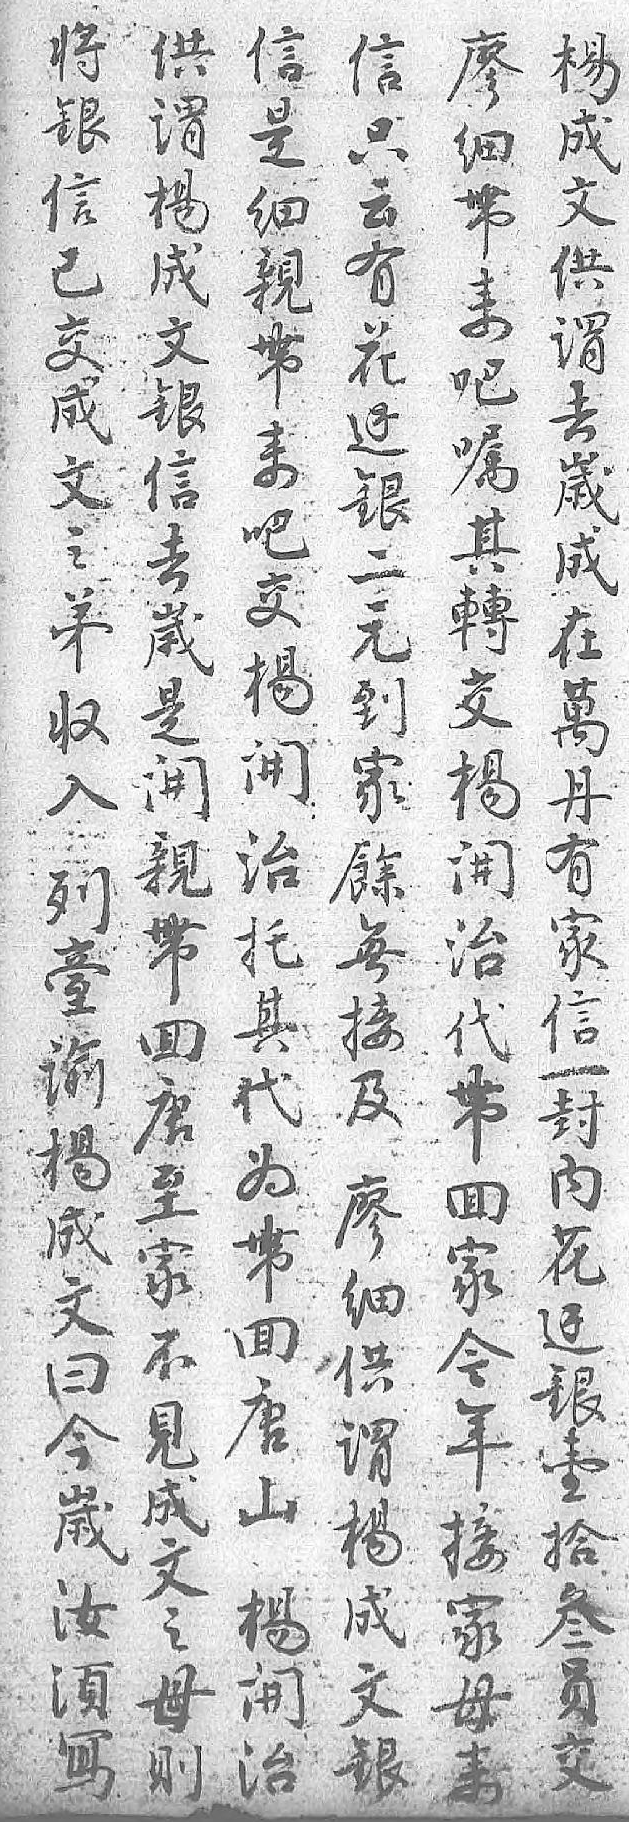 楊成文供謂去歲成在萬丹有家信一封内花边銀壹拾叁員交
廖細帶来吧嘱其轉交楊開治代帶回家今年接家母来
信只云有花边銀二元到家餘無接及 廖細供謂楊成文銀
信是細親帶来吧交楊開治托其代为帶回唐山 楊開治
供謂楊成文銀信去歲是開親帶回唐至家不見成文之母則
将銀信已交成文之弟収入 列臺諭楊成文曰今歲汝須寫